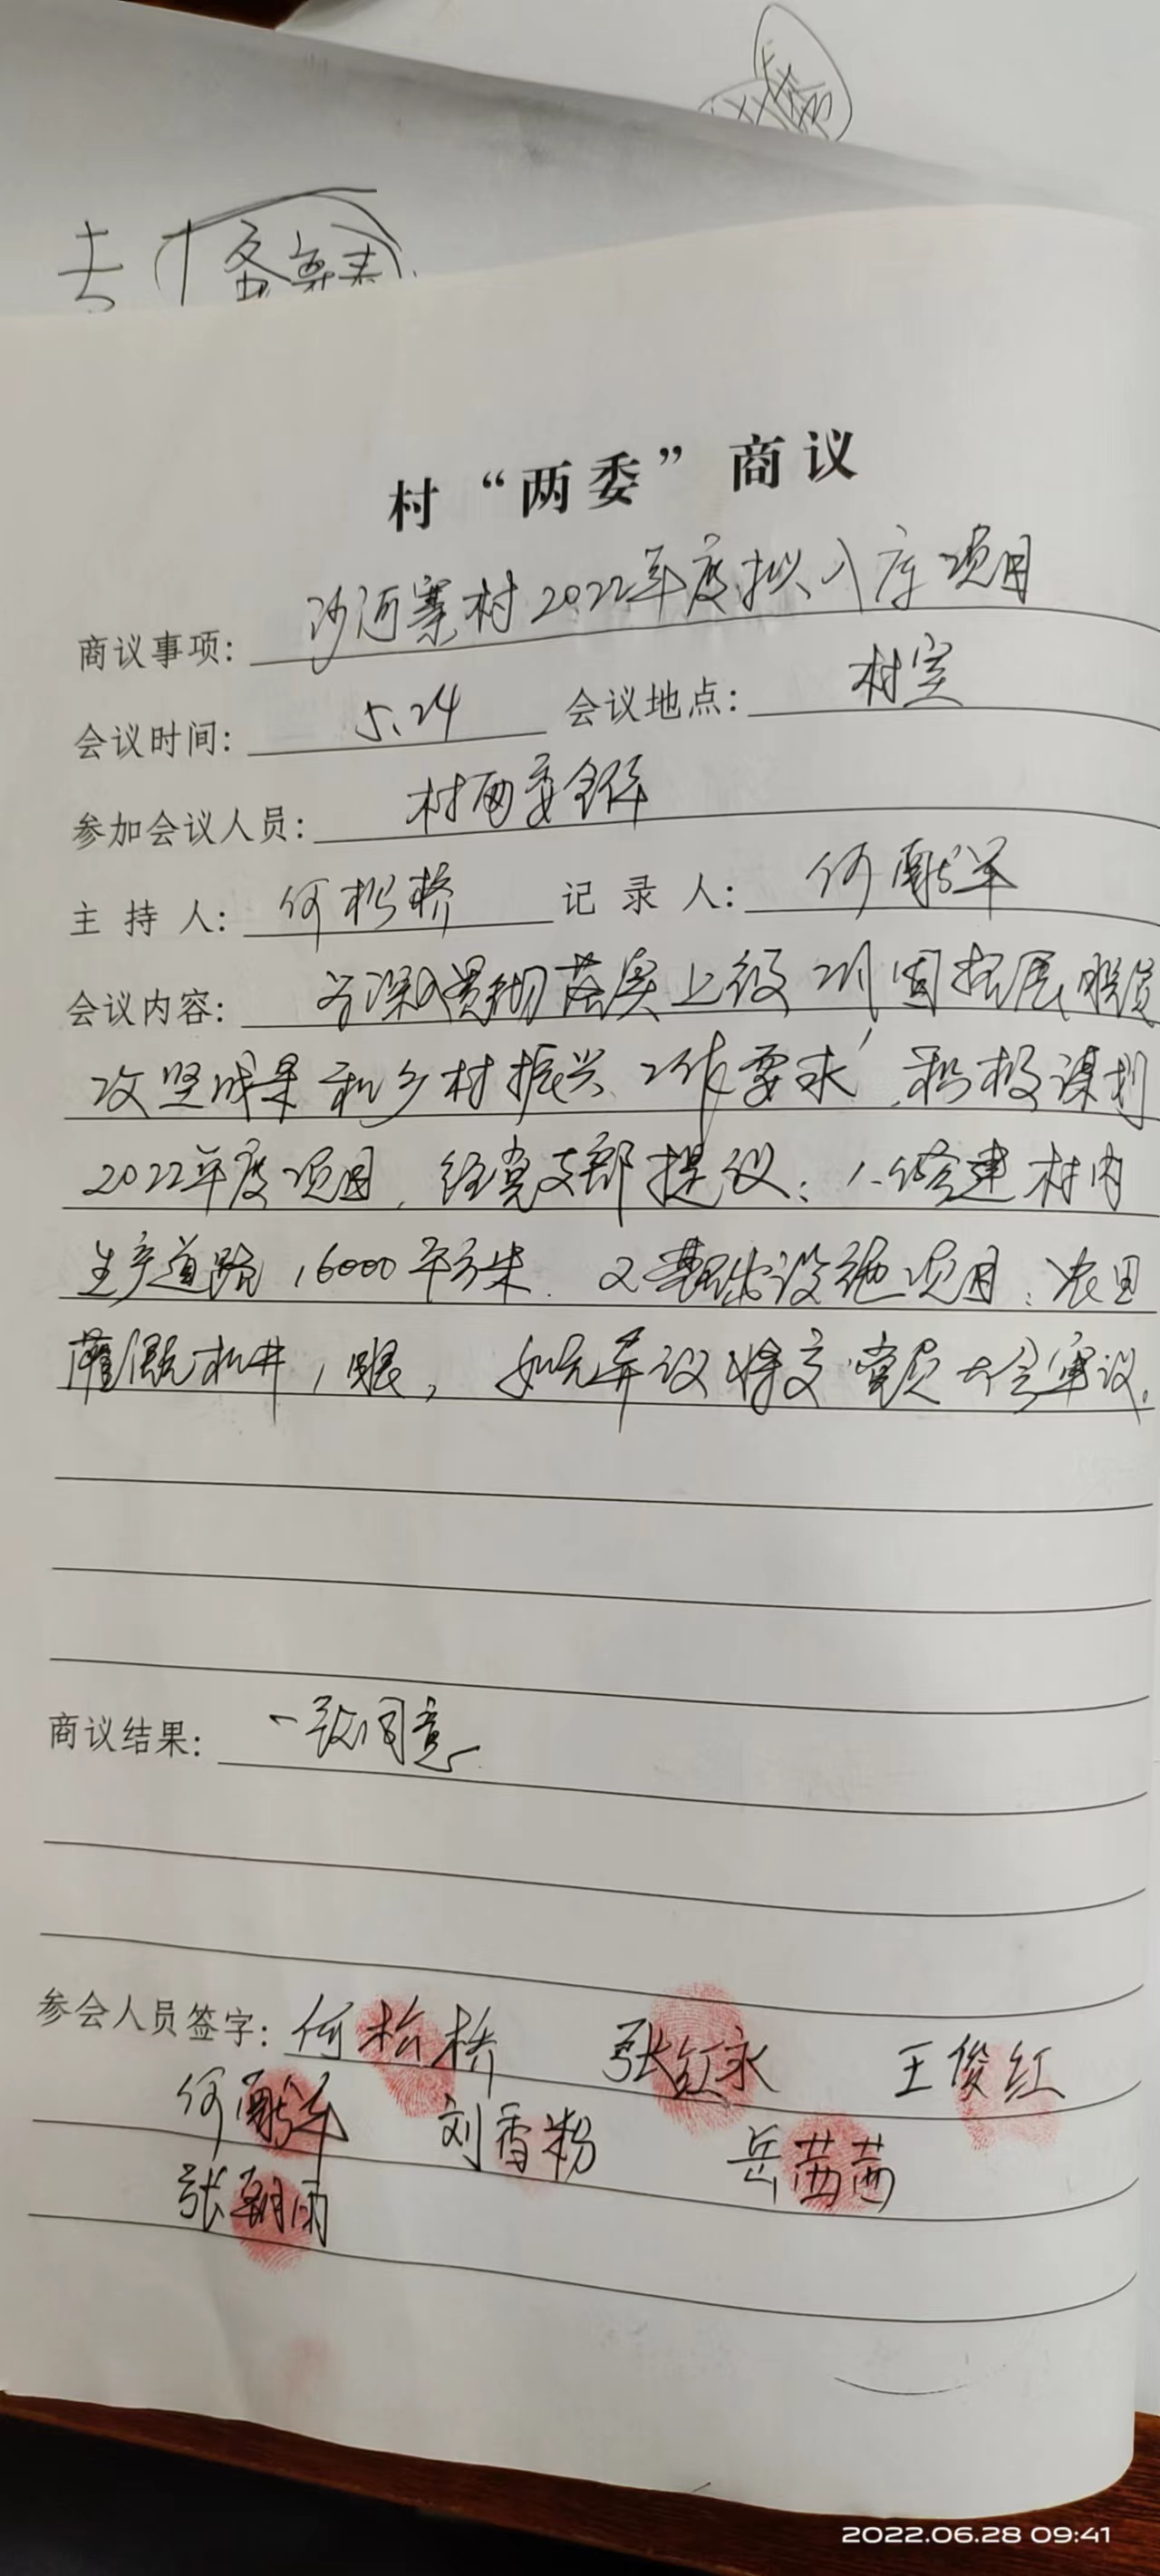 村“两委”商议
商议事项: 沙河寨村2022年度拟入库项目
会议时间: 5.24 会议地点: 村室
参加会议人员: 村两委全体
主持人: 何松桥 记录人: 何献军
会议内容: 为深入贯彻落实上级巩固拓展脱贫
攻坚成果和乡村振兴工作要求,积极谋划
2022年度项目,经党支部提议:1.修建村内
生产道路,6000平方米.2基础设施项目:农田
灌溉机井1眼, 如无异议将交党员大会审议.
商议结果: 一致同意
参会人员签字: 何松桥 张红永 王俊红
何献军 刘香粉 岳茜茜
张朝雨
2022.06.28 09:41